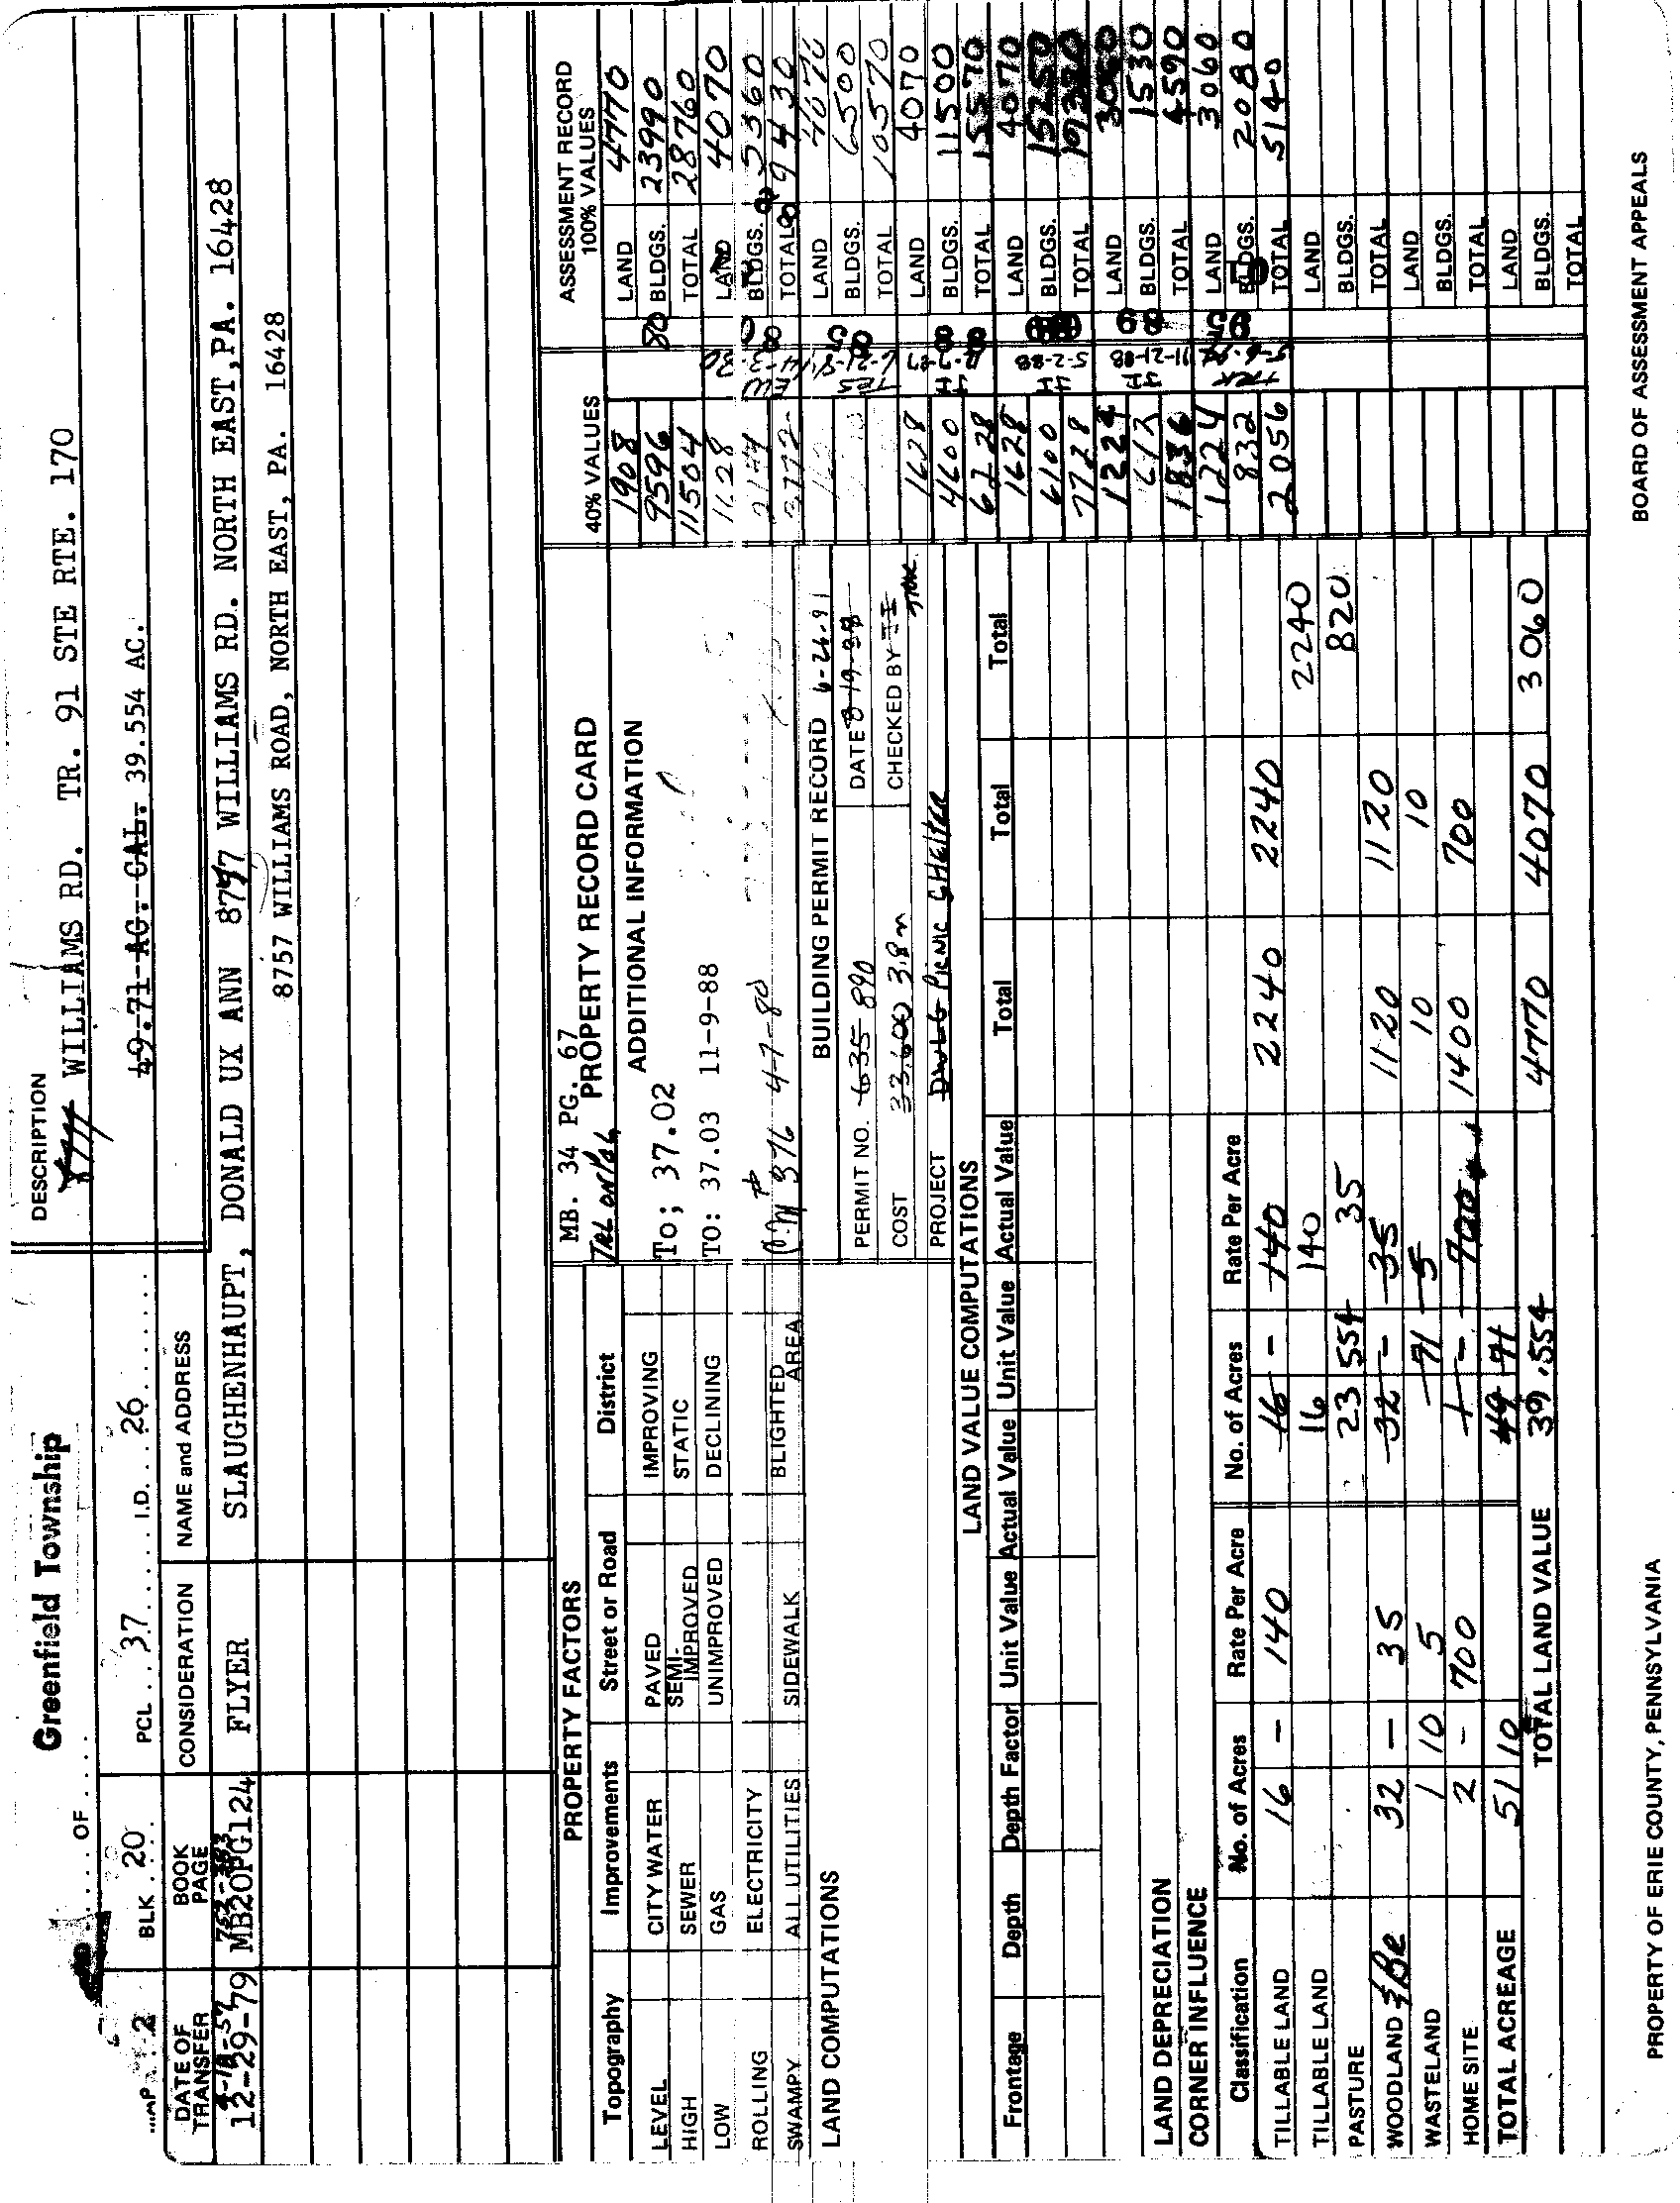 Greenfield Township
OF
MAP 2 BLK 20 PCL 37 I.D. 26
DESCRIPTION
WILLIAMS RD. TR. 91 STE RTE. 170
49.71 AG. CAL. 39.554 AC.
DATE OF TRANSFER BOOK PAGE CONSIDERATION NAME and ADDRESS
12-29-79 MB20PG124 FLYER SLAUGHENHAUPT, DONALD UX ANN 8797 WILLIAMS RD. NORTH EAST, PA. 16428
8757 WILLIAMS ROAD, NORTH EAST, PA. 16428
PROPERTY FACTORS
Topography Improvements Street or Road District
LEVEL CITY WATER PAVED IMPROVING
HIGH SEWER SEMI-IMPROVED STATIC
LOW GAS UNIMPROVED DECLINING
ROLLING ELECTRICITY
SWAMPY ALL UTILITIES SIDEWALK BLIGHTED AREA
MB. 34 PG. 67
PROPERTY RECORD CARD
ADDITIONAL INFORMATION
To; 37.02
TO: 37.03 11-9-88
376 4-7-80
BUILDING PERMIT RECORD 6-26-91
PERMIT NO. 635 890 DATE 8-19-
COST 33,600 3.8m CHECKED BY
PROJECT DWLG Picnic SHelter
40% VALUES
1908
9596
11504
1628
2144
3772
1628
4600
6228
1628
6100
7728
1224
612
1836
1224
832
2056
ASSESSMENT RECORD
100% VALUES
LAND 4770
80 BLDGS. 23990
TOTAL 28760
LAND 4070
BLDGS. 5360
TOTAL 9430
LAND 4070
BLDGS. 6500
TOTAL 10570
LAND 4070
BLDGS. 11500
TOTAL 15570
LAND 4070
BLDGS. 15250
TOTAL
LAND 3060
BLDGS. 1530
TOTAL 4590
LAND 3060
BLDGS. 2080
TOTAL 5140
LAND
BLDGS.
TOTAL
LAND
BLDGS.
TOTAL
LAND
BLDGS.
TOTAL
5-2-88
11-21-88
LAND COMPUTATIONS
LAND VALUE COMPUTATIONS
Frontage Depth Depth Factor Unit Value Actual Value Unit Value Actual Value Unit Value Actual Value Total Total Total
LAND DEPRECIATION
CORNER INFLUENCE
Classification No. of Acres Rate Per Acre No. of Acres Rate Per Acre
TILLABLE LAND 16 - 140 16 - 140 2240 2240
TILLABLE LAND 16 140 2240
PASTURE 23 554 35 820
WOODLAND 32 - 35 32 - 35 1120 1120
WASTELAND 1 10 5 71 5 10 10
HOME SITE 2 - 700 1 - 700 1400 700
TOTAL ACREAGE 51 10 49 71
TOTAL LAND VALUE 39.554 4770 4070 3060
PROPERTY OF ERIE COUNTY, PENNSYLVANIA
BOARD OF ASSESSMENT APPEALS